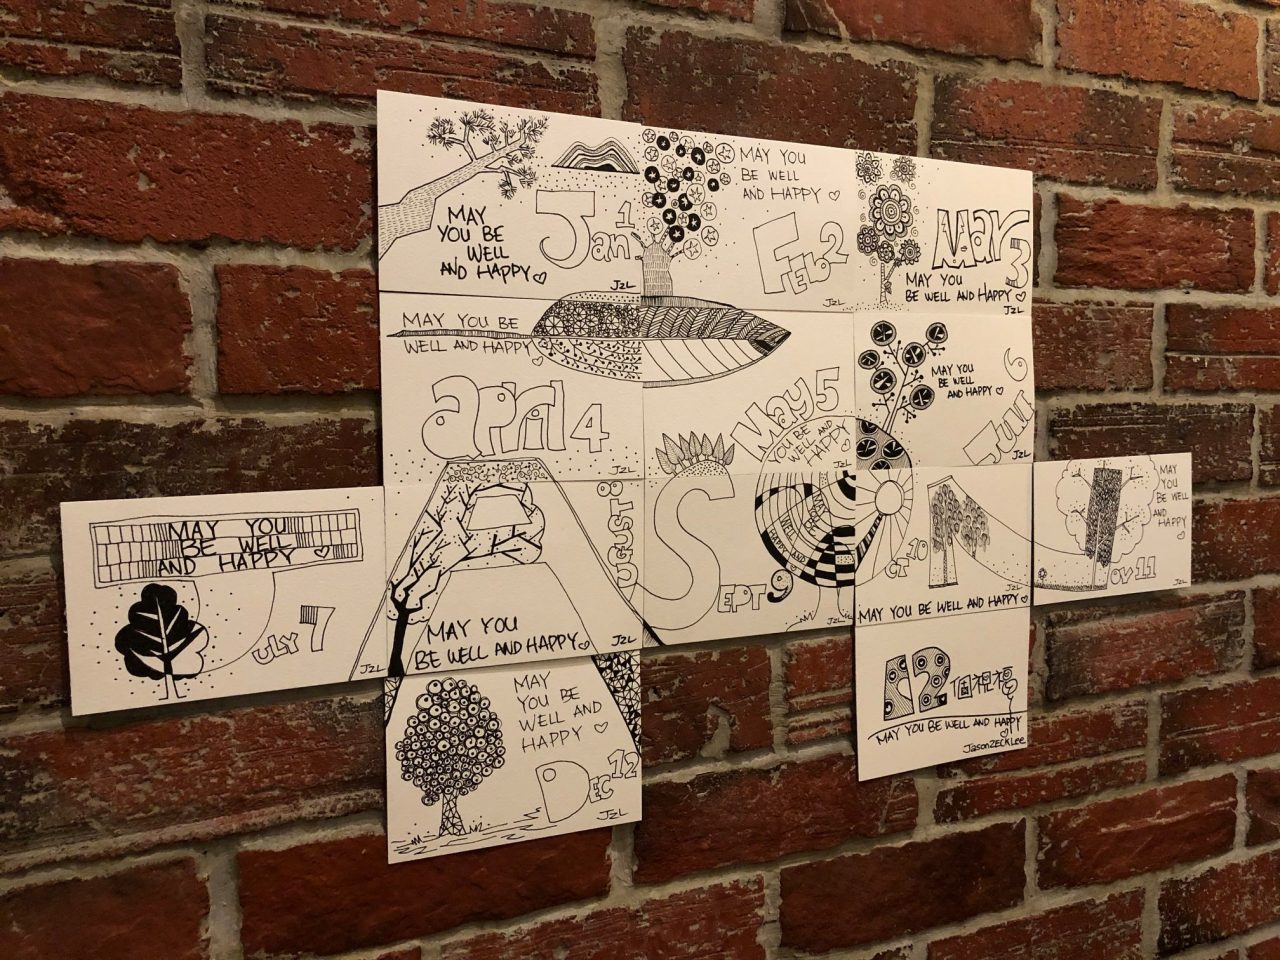 MAY
YOU BE
WELL
AND HAPPY
Jan 1
JZL
MAY YOU
BE WELL
AND HAPPY
FEb 2
JZL
Mar 3
MAY YOU
BE WELL AND HAPPY
JZL
MAY YOU BE
WELL AND HAPPY
april 4
JZL
May 5
YOU BE
WELL AND
HAPPY
JZL
MAY YOU
BE WELL
AND HAPPY
6
JUN
JZL
MAY YOU
BE WELL
AND HAPPY
JULY 7
JZL
AUGUST 8
MAY YOU
BE WELL AND HAPPY
JZL
SEPT 9
JZL
OCT 10
MAY YOU BE WELL AND HAPPY
JZL
MAY
YOU
BE WELL
AND
HAPPY
NOV 11
JZL
MAY
YOU BE
WELL AND
HAPPY
DEC 12
JZL
12.
MAY YOU BE WELL AND HAPPY
JasonZECKLee